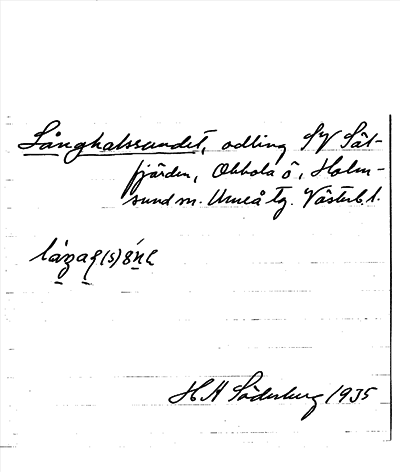 Långhalssundet, odling SV Sät-
fjärden, Obbola ö, Holm-
sund m. Umeå tg. Västerb. l.
H H Söderberg 1935